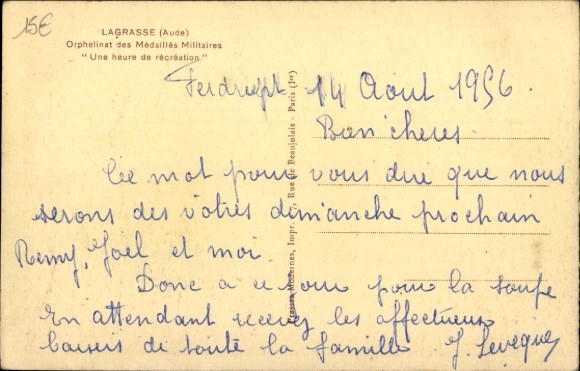 15€
LAGRASSE (Aude)
Orphelinat des Médaillés Militaires
"Une heure de récréation"
Ferdrupt 14 Août 1956.
Bien chères.
Ce mot pour vous dire que nous
serons des vôtres dimanche prochain
Remy, Joël et moi.
Donc a ce soir pour la soupe
En attendant recevez les affectueux
baisers de toute la famille J. Leveque
Presses Modernes, Impr. 7, Rue de Beaujolais - Paris (Ier)